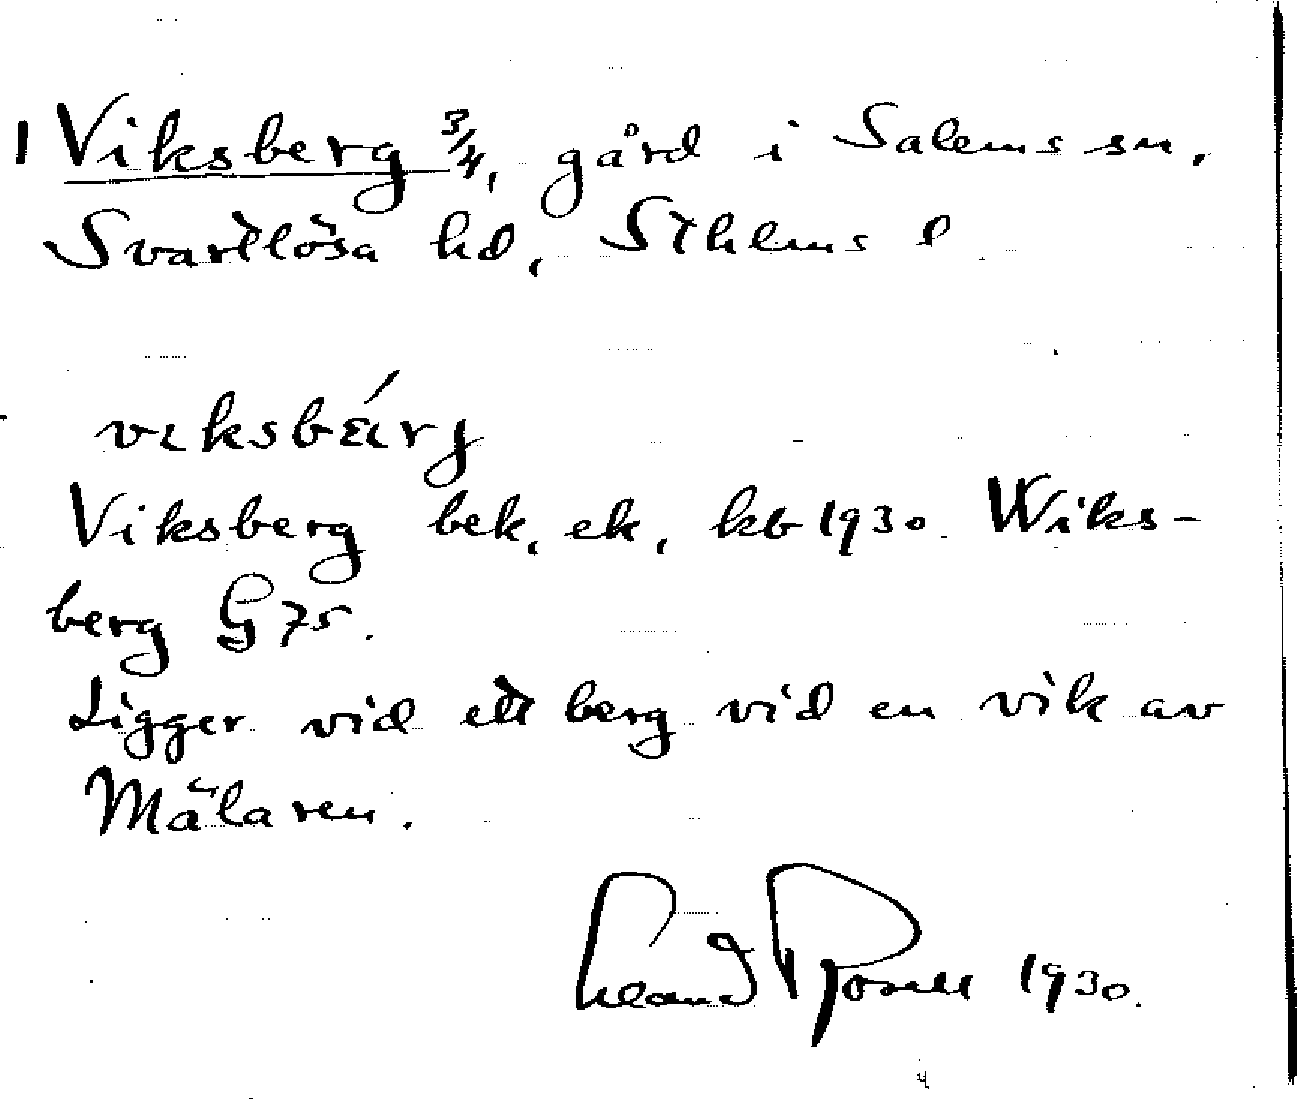 1 Viksberg 3/4, gård i Salems sn,
Svartlösa hd, Sthlms l
viksbärg
Viksberg bek, ek, kb 1930. Wiks-
berg G 75.
Ligger vid ett berg vid en vik av
Mälaren.
Erland Rosell 1930.